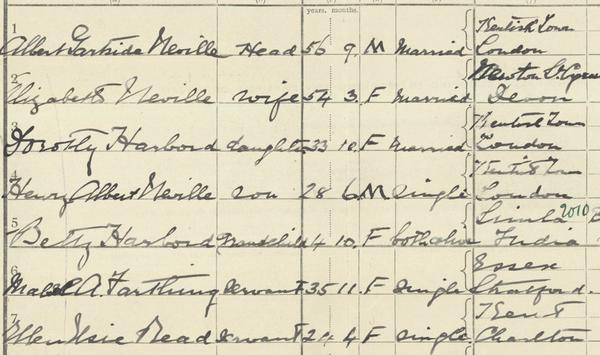 years. months.
1 Kentish Town
Albert Gartside Neville Head 56 9 M Married London
2 Newton St Cyres
Elizabeth Neville wife 54 3 F Married Devon
3 Kentish Town
Dorothy Harbord daughter 33 10 F Married London
4 Kentish Town
Henry Albert Neville son 28 6 M single London
Simla 2010
5 Betty Harbord Grandchild 4 10 F both alive India
6 Essex
Mabel A. Farthing servant 35 11 F single Stratford.
7 Kent
Ellen Elsie Read servant 4 F single Charlton